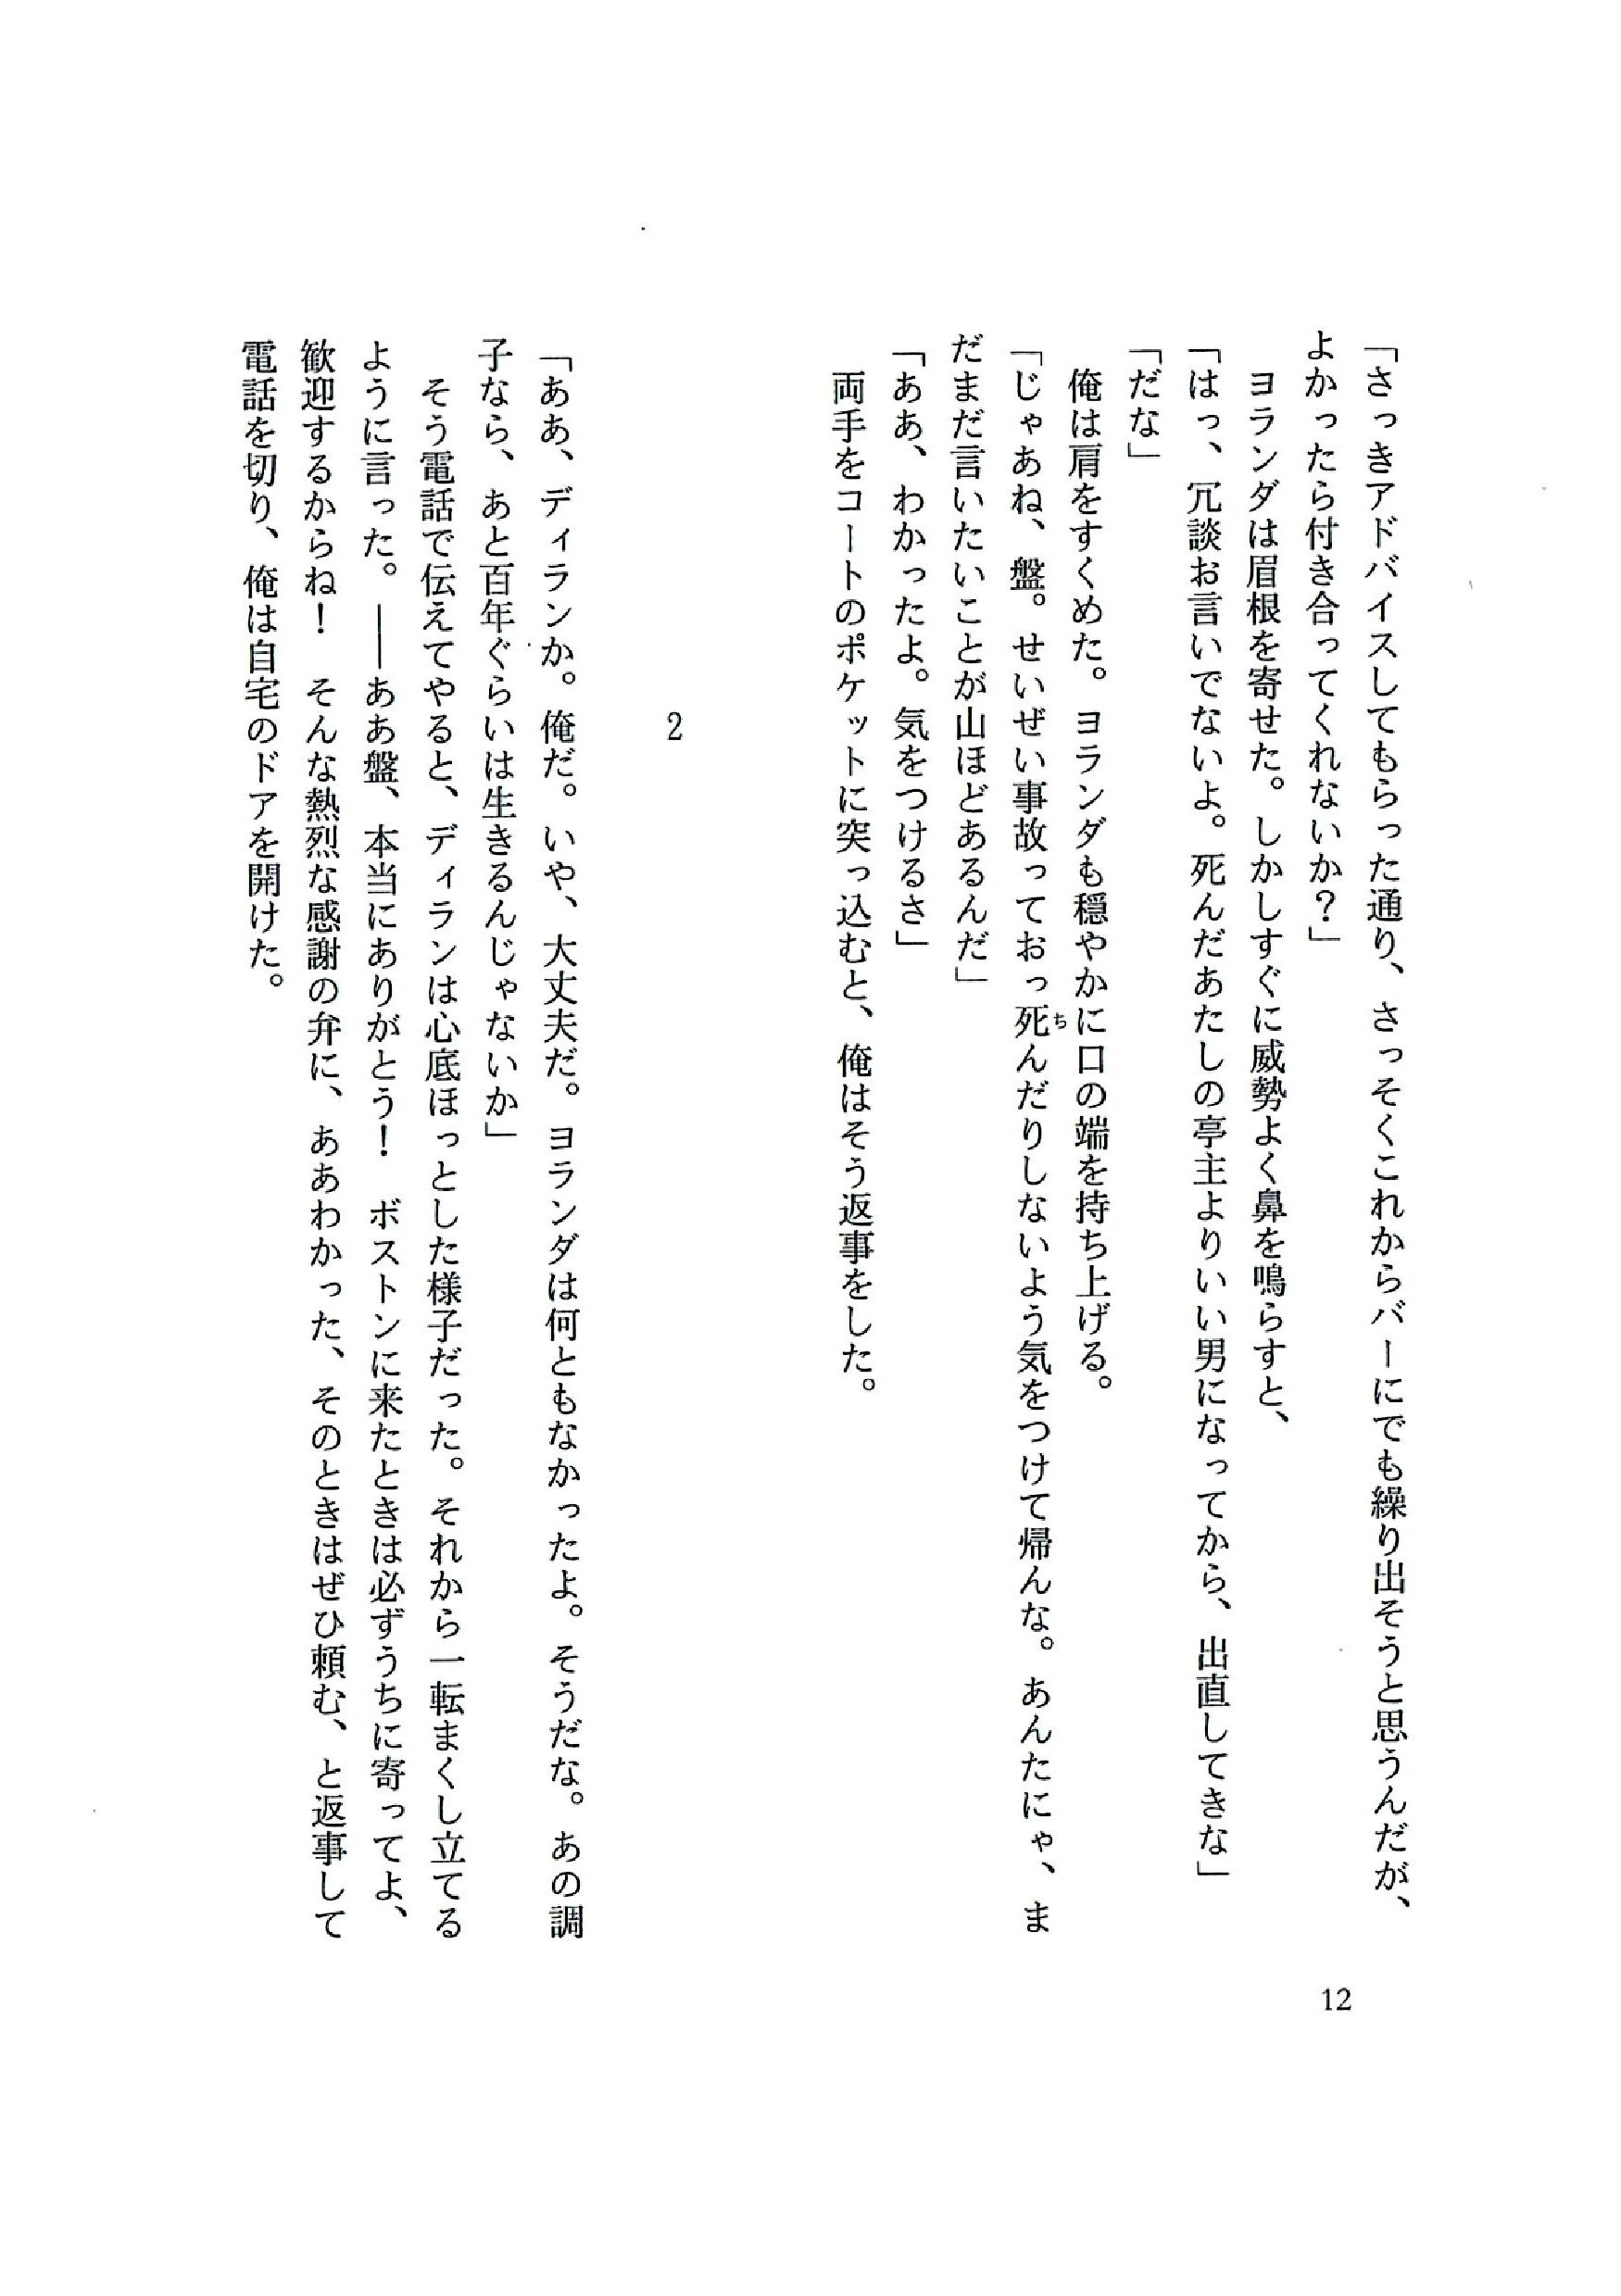 「さっきアドバイスしてもらった通り、さっそくこれからバーにでも繰り出そうと思うんだが、
よかったら付き合ってくれないか?」
　ヨランダは眉根を寄せた。しかしすぐに威勢よく鼻を鳴らすと、
「はっ、冗談お言いでないよ。死んだあたしの亭主よりいい男になってから、出直してきな」
「だな」
　俺は肩をすくめた。ヨランダも穏やかに口の端を持ち上げる。
「じゃあね、盤。せいぜい事故っておっ死ちんだりしないよう気をつけて帰んな。あんたにゃ、ま
だまだ言いたいことが山ほどあるんだ」
「ああ、わかったよ。気をつけるさ」
　両手をコートのポケットに突っ込むと、俺はそう返事をした。
2
「ああ、ディランか。俺だ。いや、大丈夫だ。ヨランダは何ともなかったよ。そうだな。あの調
子なら、あと百年ぐらいは生きるんじゃないか」
　そう電話で伝えてやると、ディランは心底ほっとした様子だった。それから一転まくし立てる
ように言った。――ああ盤、本当にありがとう!　ボストンに来たときは必ずうちに寄ってよ、
歓迎するからね!　そんな熱烈な感謝の弁に、ああわかった、そのときはぜひ頼む、と返事して
電話を切り、俺は自宅のドアを開けた。
12